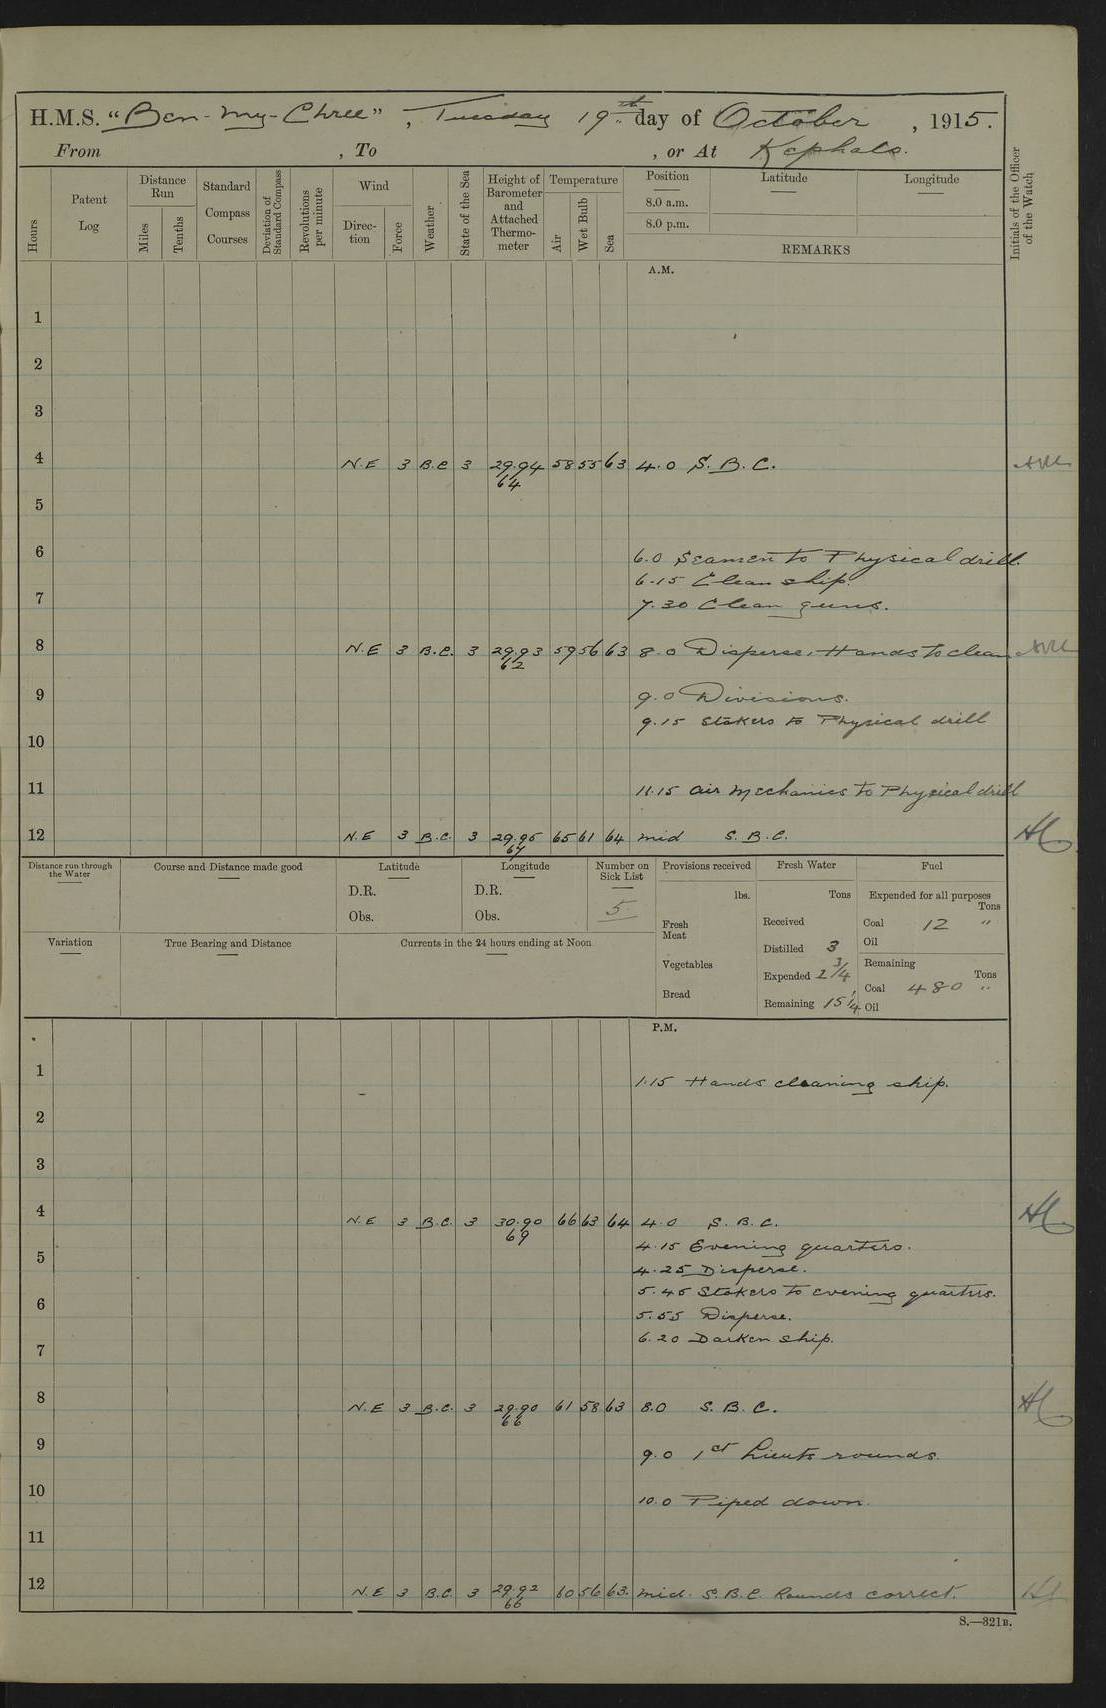 H.M.S. "Ben-my-Chree", Tuesday 19th day of October, 1915.
From , To , or At Kephalo.
Hours
Patent Log
Distance Run
Miles
Tenths
Standard Compass Courses
Deviation of Standard Compass
Revolutions per minute
Wind
Direction
Force
Weather
State of the Sea
Height of Barometer and Attached Thermometer
Temperature
Air
Wet Bulb
Sea
Position
8.0 a.m.
8.0 p.m.
Latitude
Longitude
REMARKS
Initials of the Officer of the Watch
A.M.
1
2
3
4 N.E 3 B.C 3 29.94 64 58 55 63 4.0 S.B.C.
5
6 6.0 Seamen to Physical drill.
6.15 Clean ship.
7 7.30 Clean guns.
8 N.E 3 B.C. 3 29.93 62 59 56 63 8.0 Disperse, Hands to clean
9 9.0 Divisions.
9.15 Stokers to Physical drill
10
11 11.15 Air Mechanics to Physical drill
12 N.E 3 B.C. 3 29.95 67 65 61 64 mid S.B.C.
Distance run through the Water
Course and Distance made good
Latitude
D.R.
Obs.
Longitude
D.R.
Obs.
Number on Sick List
5
Provisions received
lbs.
Fresh Meat
Vegetables
Bread
Fresh Water
Tons
Received
Distilled 3
Expended 2 3/4
Remaining 15 1/4
Fuel
Expended for all purposes
Tons
Coal 12 "
Oil
Remaining
Tons
Coal 480 "
Oil
Variation
True Bearing and Distance
Currents in the 24 hours ending at Noon
P.M.
1 1.15 Hands cleaning ship.
2
3
4 N.E 3 B.C. 3 30.90 69 66 63 64 4.0 S.B.C.
4.15 Evening quarters.
5 4.25 Disperse.
5.45 Stokers to evening quarters.
6 5.55 Disperse.
6.20 Darken ship.
7
8 N.E 3 B.C. 3 29.90 66 61 58 63 8.0 S.B.C.
9 9.0 1st Lieuts rounds.
10 10.0 Piped down.
11
12 N.E 3 B.C. 3 29.92 66 60 56 63. mid. S.B.C. Rounds correct.
S.—321B.